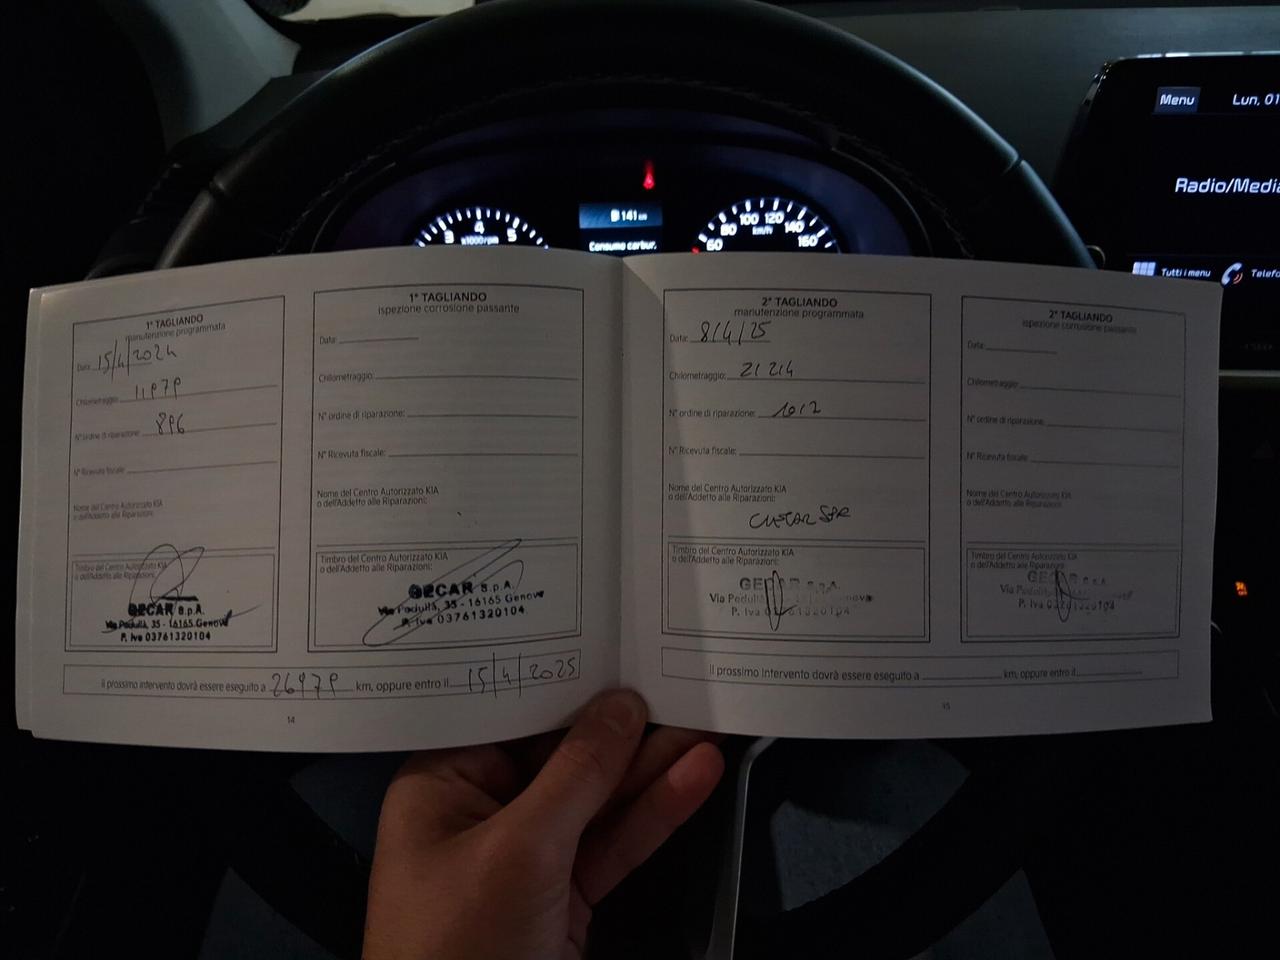 Menu
Lun, 01
Radio/Media
Tutti i menu
Telefo
3 4 5
x1000rpm
141 km
Consumo carbur.
60 80 100 120 140 160
km/h
1° TAGLIANDO
manutenzione programmata
Data: 15/4/2024
Chilometraggio: 11979
N° ordine di riparazione: 896
N° Ricevuta fiscale:
Nome del Centro Autorizzato KIA
o dell'Addetto alle Riparazioni:
Timbro del Centro Autorizzato KIA
o dell'Addetto alle Riparazioni:
GECAR S.p.A.
Via Pedullà, 35 - 16165 Genova
P. Iva 03761320104
1° TAGLIANDO
ispezione corrosione passante
Data:
Chilometraggio:
N° ordine di riparazione:
N° Ricevuta fiscale:
Nome del Centro Autorizzato KIA
o dell'Addetto alle Riparazioni:
Timbro del Centro Autorizzato KIA
o dell'Addetto alle Riparazioni:
GECAR S.p.A.
Via Pedullà, 35 - 16165 Genova
P. Iva 03761320104
Il prossimo intervento dovrà essere eseguito a 26979 km, oppure entro il 15/4/2025
14
2° TAGLIANDO
manutenzione programmata
Data: 8/4/25
Chilometraggio: 21214
N° ordine di riparazione: 1012
N° Ricevuta fiscale:
Nome del Centro Autorizzato KIA
o dell'Addetto alle Riparazioni:
Timbro del Centro Autorizzato KIA
o dell'Addetto alle Riparazioni:
GECAR S.p.A.
Via Pedullà Genova
P. Iva 03761320104
2° TAGLIANDO
ispezione corrosione passante
Data:
Chilometraggio:
N° ordine di riparazione:
N° Ricevuta fiscale:
Nome del Centro Autorizzato KIA
o dell'Addetto alle Riparazioni:
Timbro del Centro Autorizzato KIA
o dell'Addetto alle Riparazioni:
GECAR S.p.A.
Via Pedullà
P. Iva 03761320104
Il prossimo intervento dovrà essere eseguito a km, oppure entro il
15